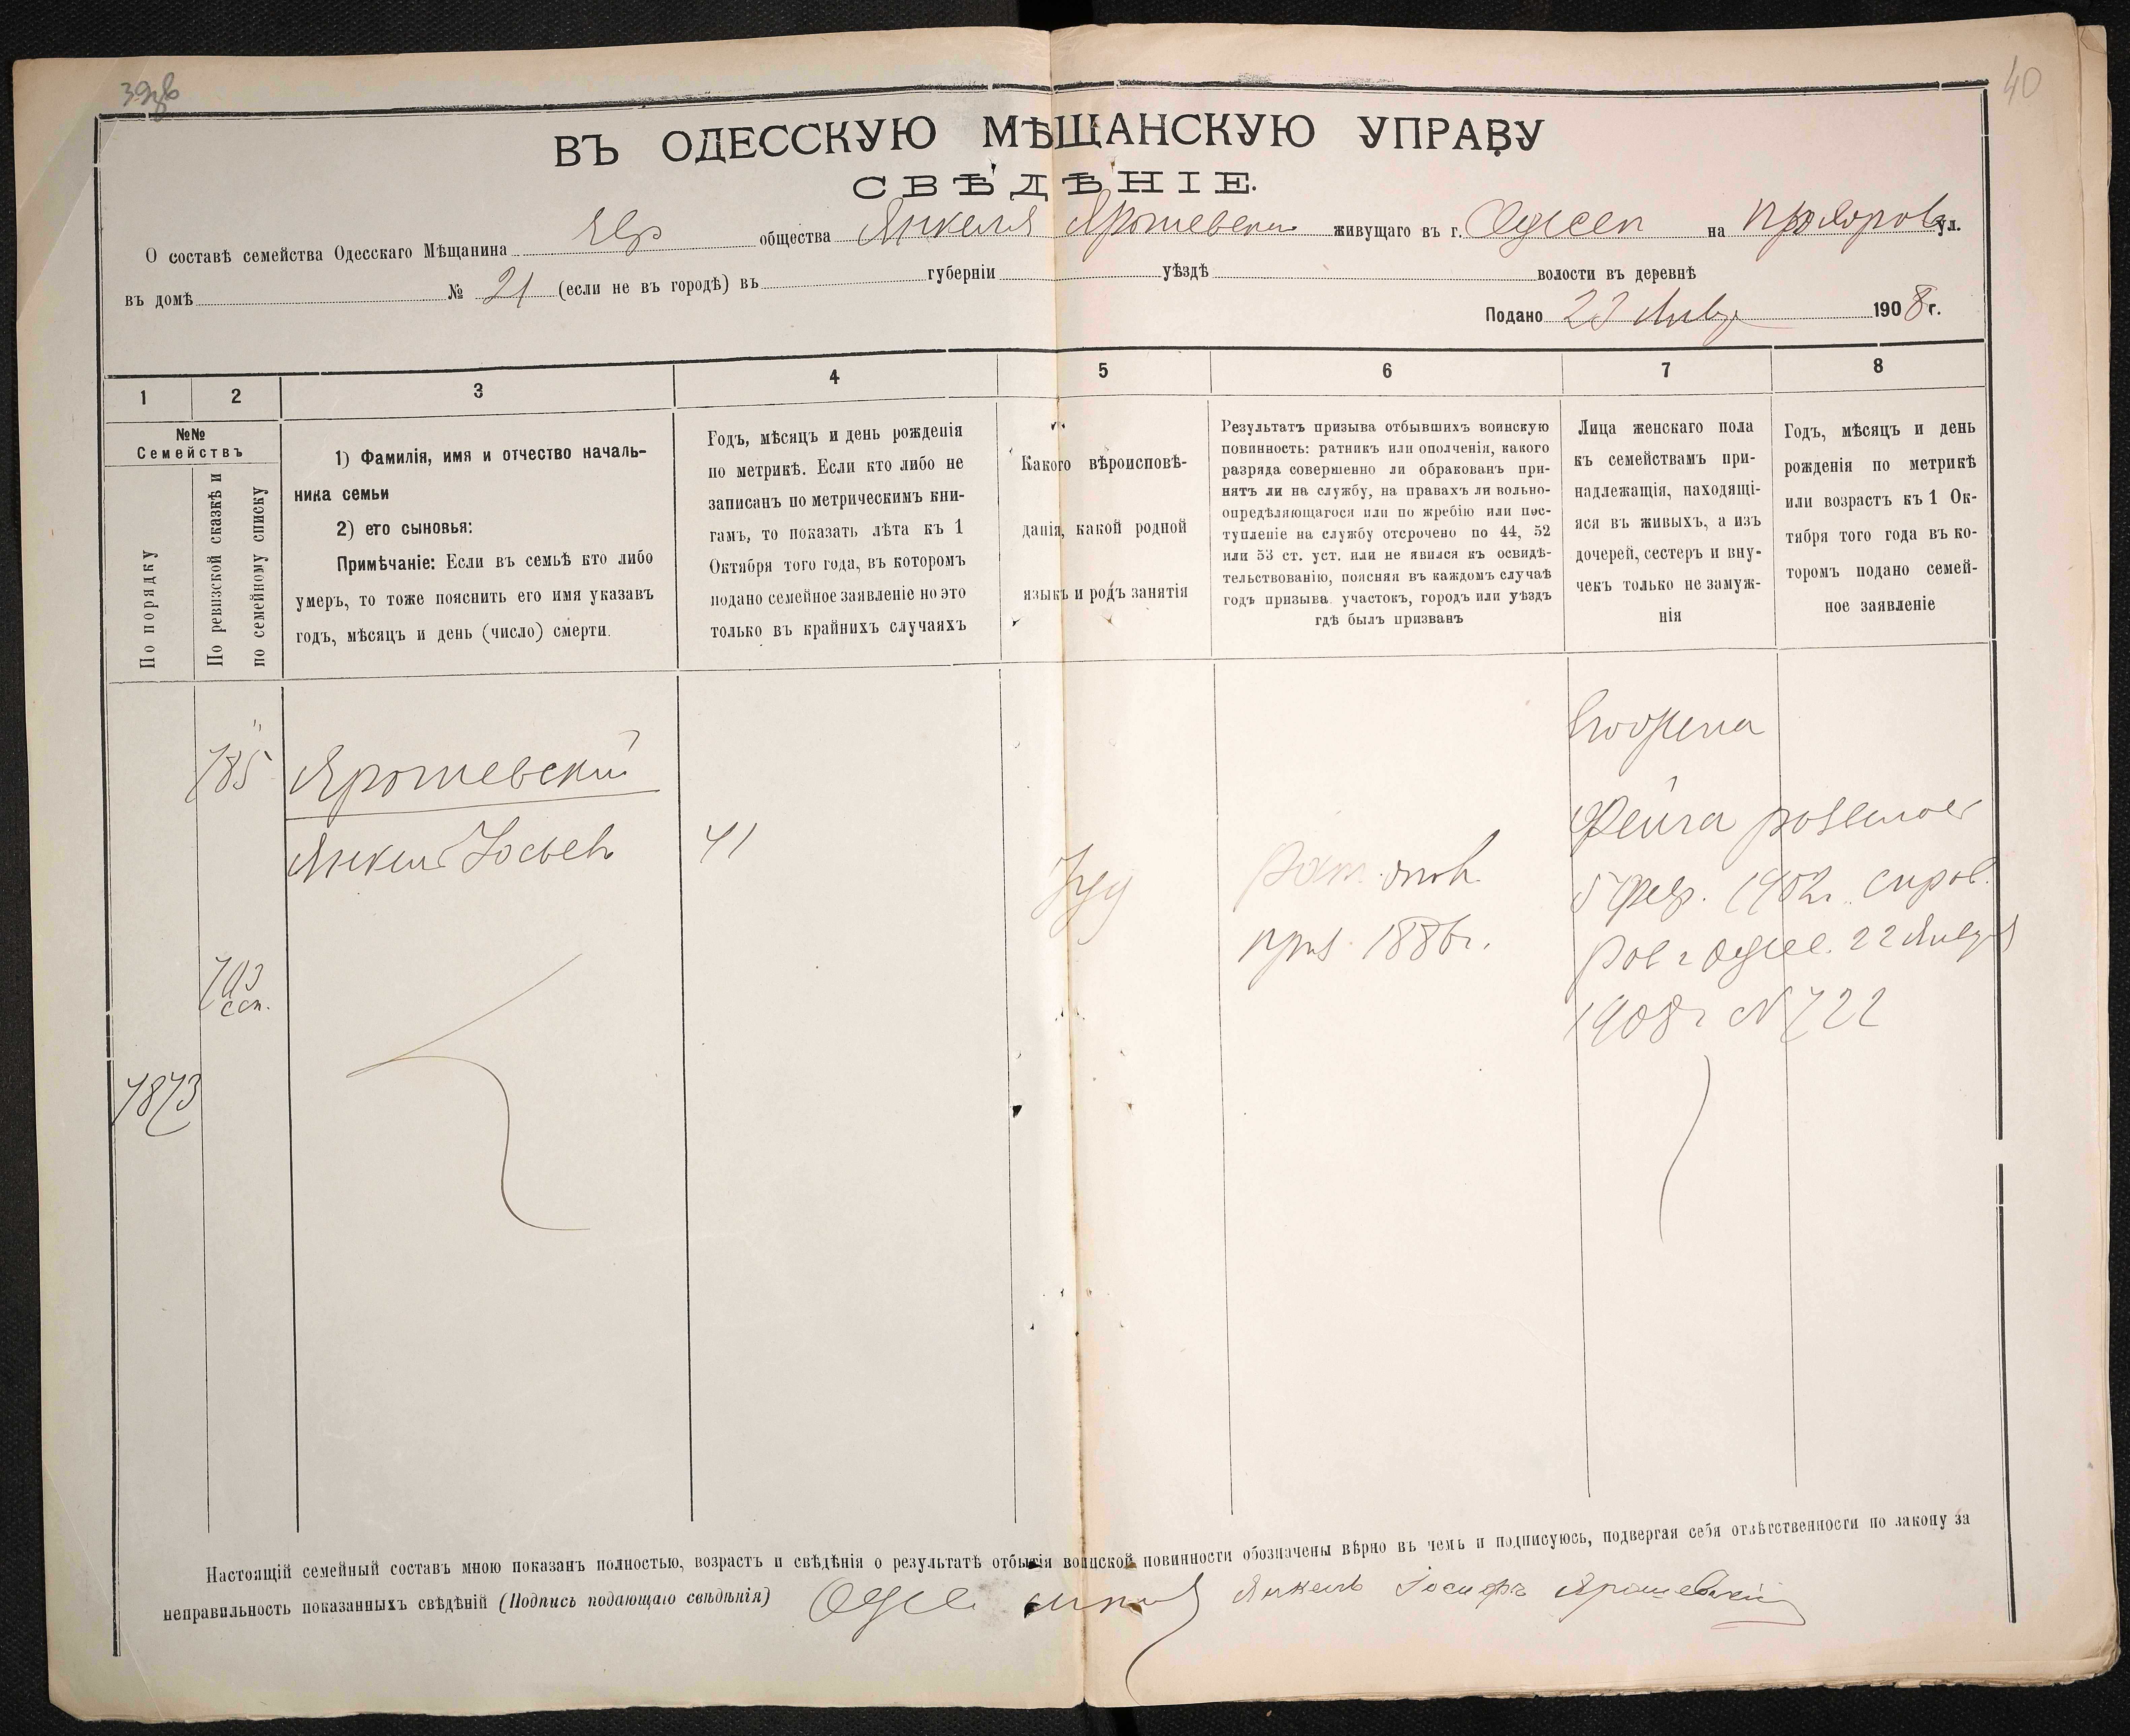 40
ВЪ ОДЕССКУЮ МѢЩАНСКУЮ УПРАВУ
СВѢДѢНІЕ.
О составѣ семейства Одесскаго Мѣщанина Евр общества Янкеля Ярошевски живущаго въ г. Одессѣ на Прохоров ул.
въ домѣ № 21 (если не въ городѣ) въ губерніи уѣздѣ волости въ деревнѣ
Подано 23 Янв 1908 г.
1 2 3 4 5 6 7 8
№№
Семействъ
По порядку
По ревизской сказкѣ и
по семейному списку
1) Фамилія, имя и отчество началь-
ника семьи
2) его сыновья:
Примѣчаніе: Если въ семьѣ кто либо
умеръ, то тоже пояснить его имя указавъ
годъ, мѣсяцъ и день (число) смерти.
Годъ, мѣсяцъ и день рожденія
по метрикѣ. Если кто либо не
записанъ по метрическимъ кни-
гамъ, то показать лѣта къ 1
Октября того года, въ которомъ
подано семейное заявленіе но это
только въ крайнихъ случаяхъ
Какого вѣроисповѣ-
данія, какой родной
языкъ и родъ занятія
Результатъ призыва отбывшихъ воинскую
повинность: ратникъ или ополченія, какого
разряда совершенно ли обракованъ при-
нятъ ли на службу, на правахъ ли вольно-
опредѣляющагося или по жребію или пос-
тупленіе на службу отсрочено по 44, 52
или 53 ст. уст. или не явился къ освидѣ-
тельствованію, поясняя въ каждомъ случаѣ
годъ призыва. участокъ, городъ или уѣздъ
гдѣ былъ призванъ
Лица женскаго пола
къ семействамъ при-
надлежащія, находящі-
яся въ живыхъ, а изъ
дочерей, сестеръ и вну-
чекъ только не замуж-
нія
Годъ, мѣсяцъ и день
рожденія по метрикѣ
или возрастъ къ 1 Ок-
тября того года въ ко-
торомъ подано семей-
ное заявленіе
785
Ярошевский
Янкель Іосьевъ
41
Іуд
Рат. опол.
приз. 1886 г.
703
ссп.
7873
Фейга
5 Февр. 1902 г. справ.
Рав г Одесс. 22 Января
1908 г № 722
Настоящій семейный составъ мною показанъ полностью, возрастъ и свѣдѣнія о результатѣ отбытія воинской повинности обозначены вѣрно въ чемъ и подписуюсь, подвергая себя отвѣтственности по закону за
неправильность показанныхъ свѣдѣній (Подпись подающаго свѣдѣнія) Янкель Іосифъ Ярошевскій